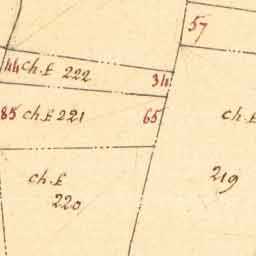 57
44 ch.E 222 34
85 ch.E 221 65 ch.E
ch.E 219
220